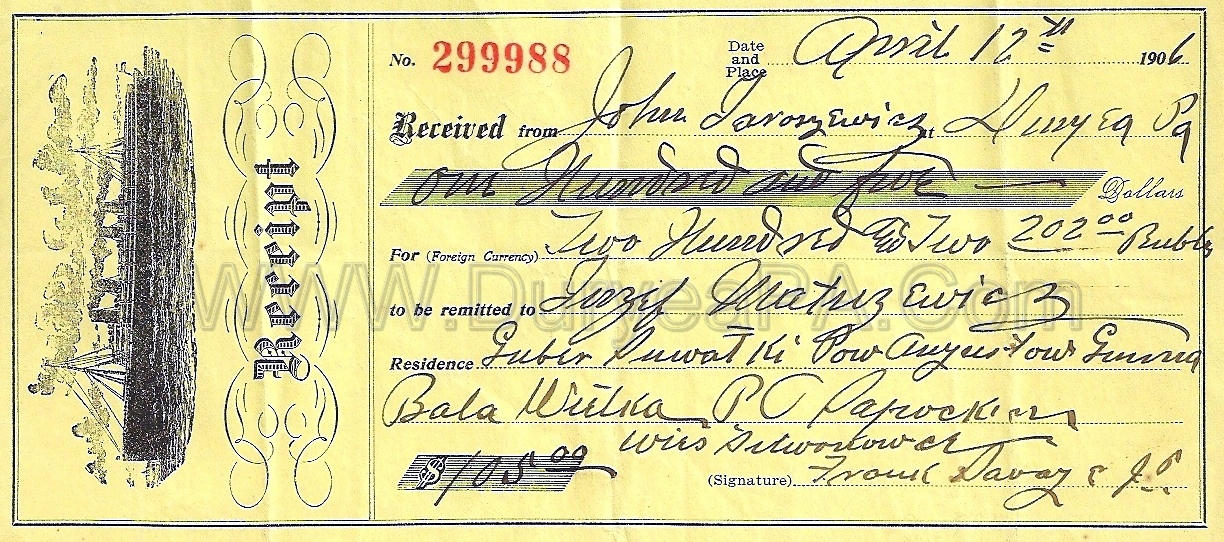 Receipt
No. 299988 Date and Place April 12th 1906
Received from John at Duryea Pa
One Hundred and five Dollars
For (Foreign Currency) Two Hundred & Two 202.00 Rubles
to be remitted to Jozef
Residence Guber Suwalki Pow Gmina
Bala Wielka P.O
Wies
$ 105.00 (Signature) Frank J.P.
WWW.DuryeaPA.Com